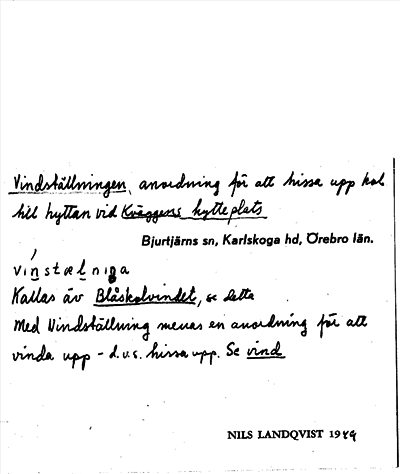 Vindställningen, anordning för att hissa upp kol
till hyttan vid Kväggens hytteplats
Bjurtjärns sn, Karlskoga hd, Örebro län.
vinstælniŋa
Kallas äv Blåskolvindet, se detta
Med Vindställning menas en anordning för att
vinda upp - d.v.s. hissa upp. Se vind
NILS LANDQVIST 1949